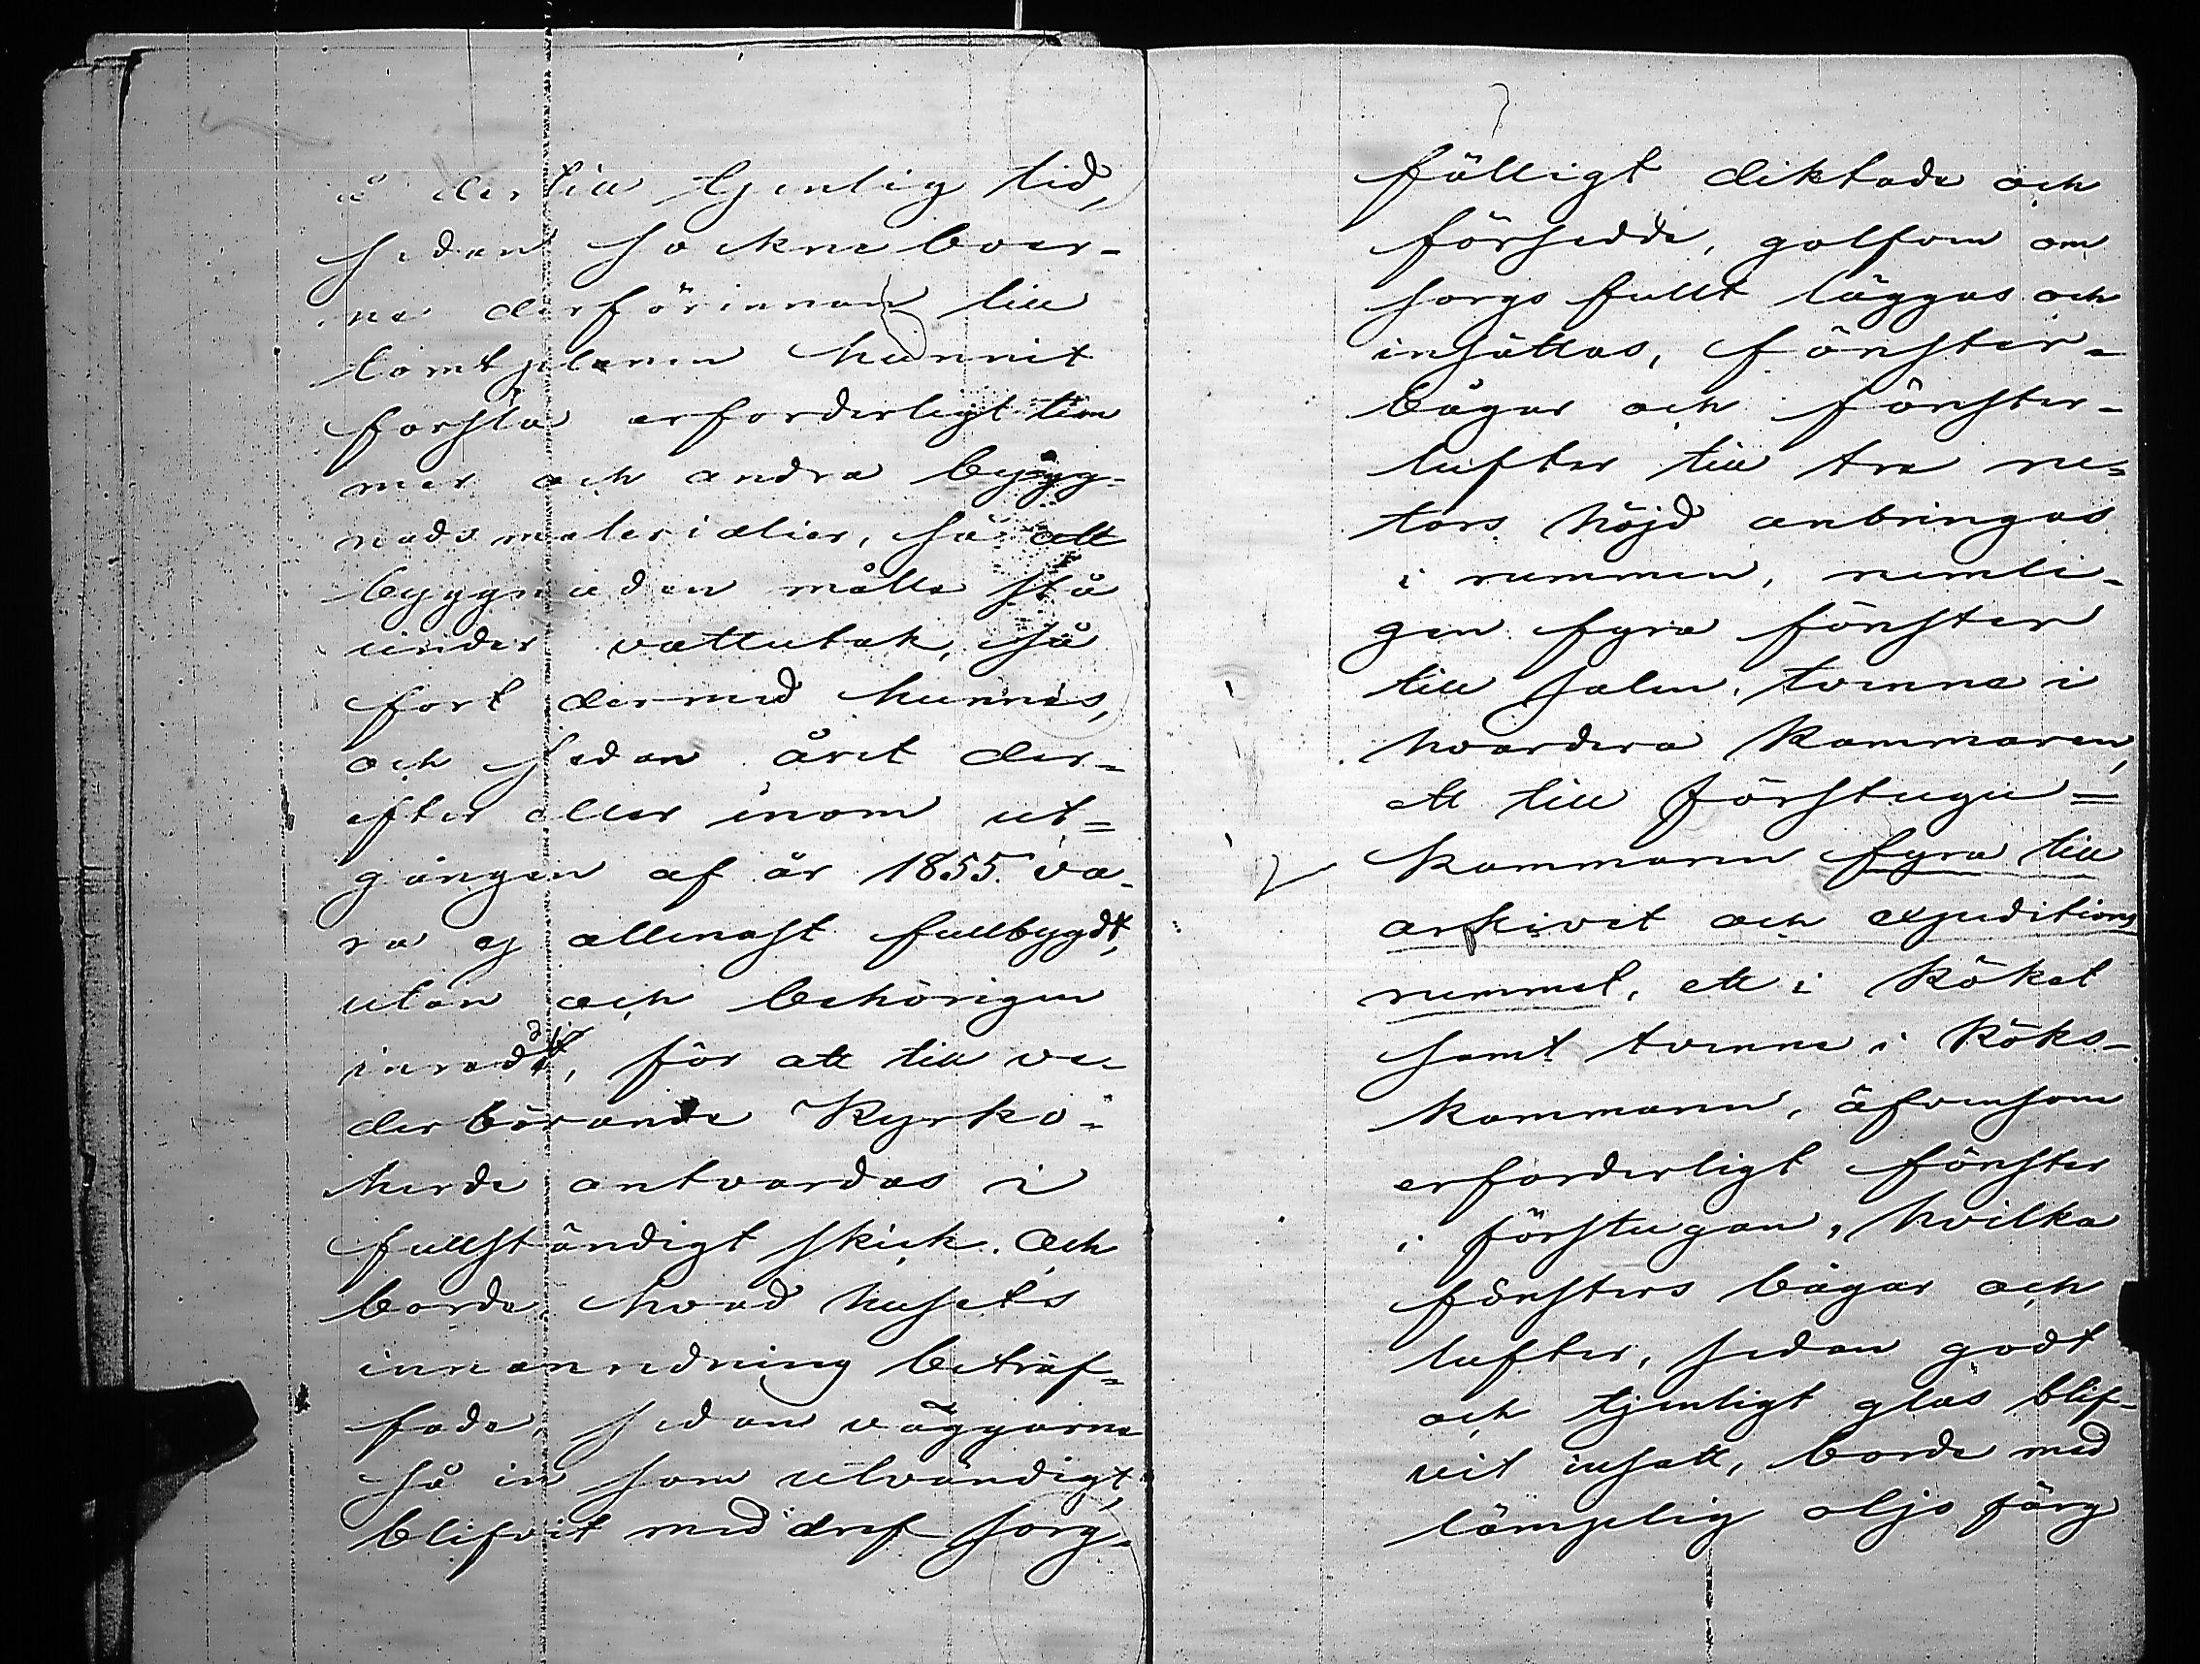 å dertill tjenlig tid,
sedan sockneboer-
ne derförinnan till
tomtplanen hunnit
forsla erforderligt tim
mer och andra bygg-
nadsmaterialier, så att
byggnaden måtte stå
under vattutak, så
fort dermed hunnes,
och sedan året der-
efter eller inom ut=
gången af år 1855 va-
ra ej allenast fullbygdt,
utan och behörigen
inredt, för att till ve-
derbörande Kyrko-
herde antvardas i
fullständigt skick. Och
borde, hvad husets
innanredning beträf-
fade, sedan väggarne
så in som utvändigt
blifvit med dref sorg-
fälligt diktade och
försedde, golfven om
sorgsfullt läggas och
insättas, fönster-
bågar och fönster-
lufter till tre ne-
tors höjd anbringas
i rummen, nemli-
gen fyra fönster
till salen, tvenne i
hvardera kammaren,
ett till förstugu=
kammaren fyra till
arkivet och expeditions
rummet, ett i köket
samt tvenne i köks-
kammaren, äfvensom
erforderligt fönster
i förstugan, hvilka
fönsters bågar och
lufter, sedan godt
och tjenligt glas blif-
vit insatt, borde med
lämpelig oljo färg